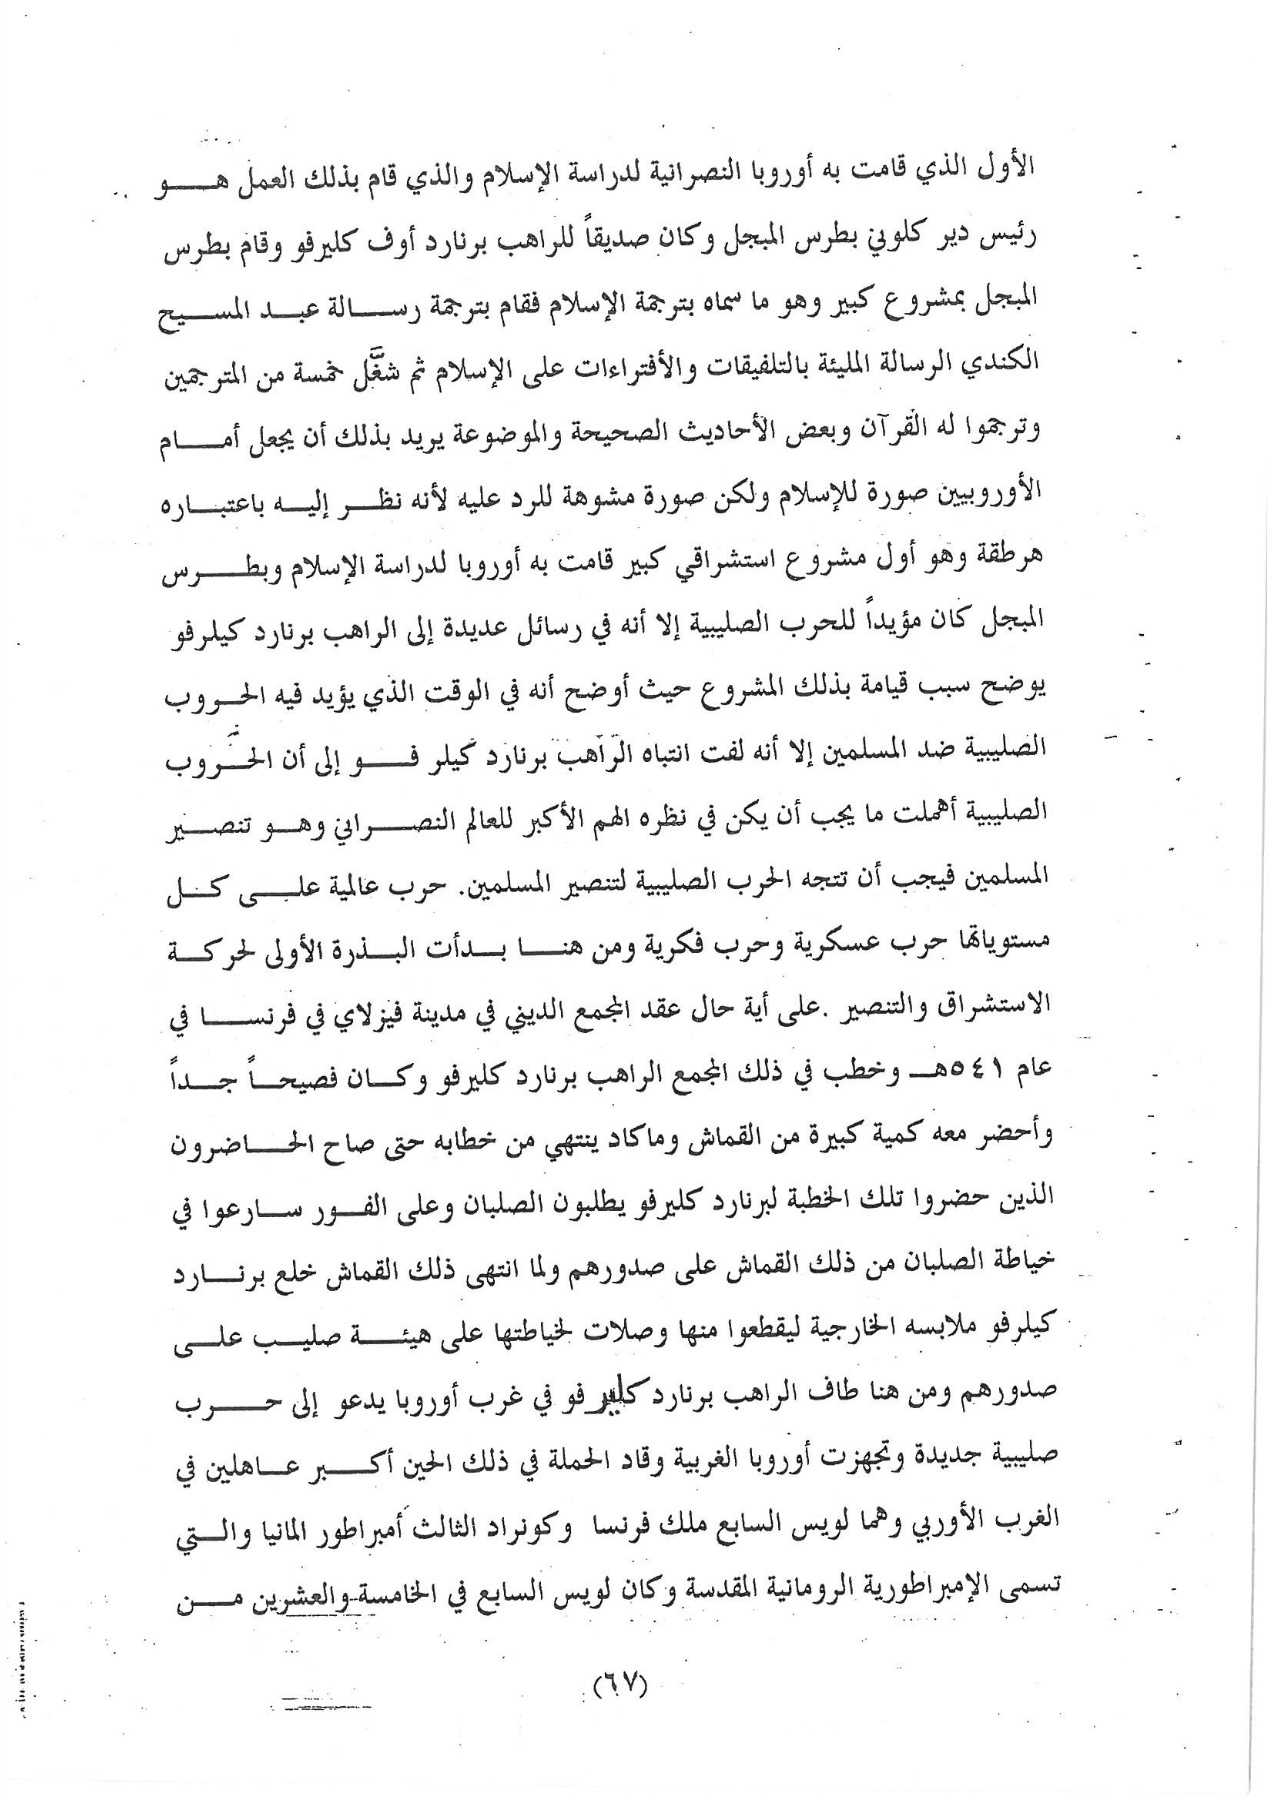 الأول الذي قامت به أوروبا النصرانية لدراسة الإسلام والذي قام بذلك العمل هو
رئيس دير كلوني بطرس المبجل وكان صديقاً للراهب برنارد أوف كليرفو وقام بطرس
المبجل بمشروع كبير وهو ما سماه بترجمة الإسلام فقام بترجمة رسالة عبد المسيح
الكندي الرسالة المليئة بالتلفيقات والأفتراءات على الإسلام ثم شغَّل خمسة من المترجمين
وترجموا له القرآن وبعض الأحاديث الصحيحة والموضوعة يريد بذلك أن يجعل أمام
الأوروبيين صورة للإسلام ولكن صورة مشوهة للرد عليه لأنه نظر إليه باعتباره
هرطقة وهو أول مشروع استشراقي كبير قامت به أوروبا لدراسة الإسلام وبطرس
المبجل كان مؤيداً للحرب الصليبية إلا أنه في رسائل عديدة إلى الراهب برنارد كيلرفو
يوضح سبب قيامة بذلك المشروع حيث أوضح أنه في الوقت الذي يؤيد فيه الحروب
الصليبية ضد المسلمين إلا أنه لفت انتباه الراهب برنارد كيلر فو إلى أن الحروب
الصليبية أهملت ما يجب أن يكن في نظره الهم الأكبر للعالم النصراني وهو تنصير
المسلمين فيجب أن تتجه الحرب الصليبية لتنصير المسلمين. حرب عالمية على كل
مستوياتها حرب عسكرية وحرب فكرية ومن هنا بدأت البذرة الأولى لحركة
الاستشراق والتنصير .على أية حال عقد المجمع الديني في مدينة فيزلاي في فرنسا في
عام ٥٤١هـ وخطب في ذلك المجمع الراهب برنارد كليرفو وكان فصيحاً جداً
وأحضر معه كمية كبيرة من القماش وماكاد ينتهي من خطابه حتى صاح الحاضرون
الذين حضروا تلك الخطبة لبرنارد كليرفو يطلبون الصلبان وعلى الفور سارعوا في
خياطة الصلبان من ذلك القماش على صدورهم ولما انتهى ذلك القماش خلع برنارد
كيلرفو ملابسه الخارجية ليقطعوا منها وصلات لخياطتها على هيئة صليب على
صدورهم ومن هنا طاف الراهب برنارد كليرفو في غرب أوروبا يدعو إلى حرب
صليبية جديدة وتجهزت أوروبا الغربية وقاد الحملة في ذلك الحين أكبر عاهلين في
الغرب الأوربي وهما لويس السابع ملك فرنسا وكونراد الثالث أمبراطور المانيا والتي
تسمى الإمبراطورية الرومانية المقدسة وكان لويس السابع في الخامسة والعشرين من
(٦٧)